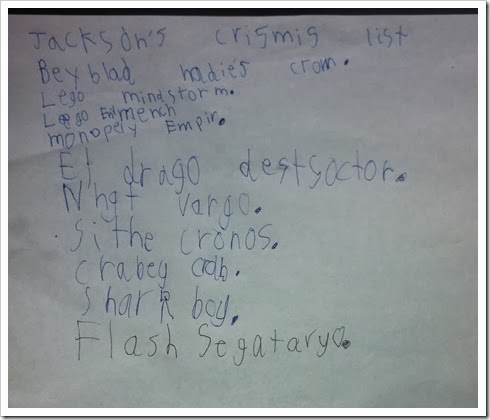 Jackson's crismis list
Beyblad hadie's crom.
Lego mindstorm.
Lego Evilmench
monopely Empir.
El drago destsoctor.
N'hgt vargo.
Sithe cronos.
crabey crdb.
Shark boy.
Flash Segataryo.